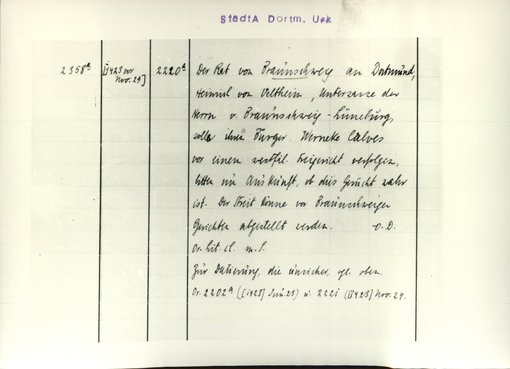 StadtA Dortm. Urk
2358a [1423 vor Nov. 25] 2220a Der Rat von Braunschweig an Dortmund,
Heinrich von Veltheim, Untersasse der
Herrn v. Braunschweig-Lüneburg,
solle ihren Bürger Werneke Calves
vor einem westfäl. Freigericht verfolgen,
bitten um Auskunft, ob dies Gerücht wahr
ist. Der Streit könne vor Braunschweiger
Gerichten abgestellt werden. o.D.
Or. lit. cl. m. S.
Zur Datierung, die unsicher, vgl. oben
Nr. 2202a ([1423] Juni 25) u. 2221 ([1423] Nov. 24.